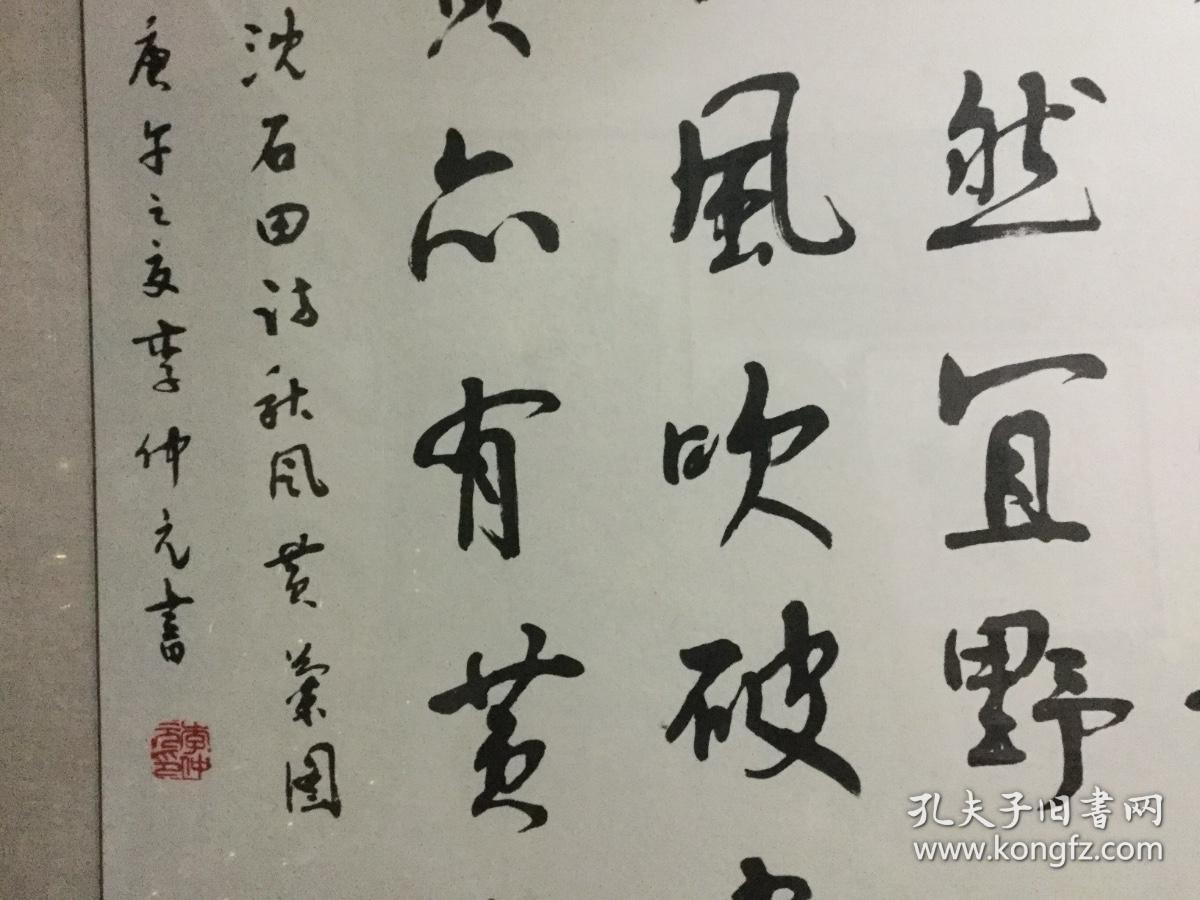 然宜野
風吹破
亦有黄
沈石田詩秋风黄葉图
庚午之夏李仲元書
李仲元印
孔夫子旧書网
www.kongfz.com